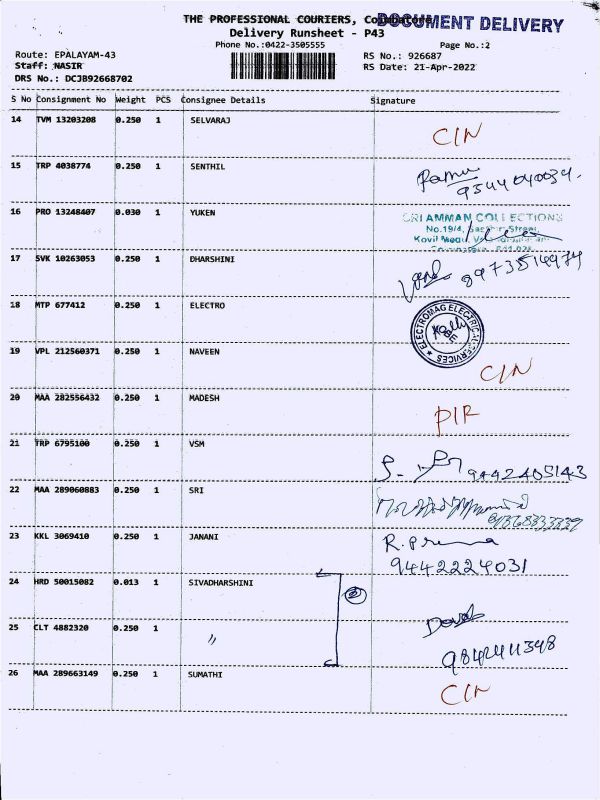 THE PROFESSIONAL COURIERS, Coimbatore
DOCUMENT DELIVERY
Delivery Runsheet - P43
Phone No.:0422-3505555
Page No.:2
Route: EPALAYAM-43
RS No.: 926687
Staff: NASIR
RS Date: 21-Apr-2022
DRS No.: DCJB92668702
S No Consignment No Weight PCS Consignee Details Signature
14 TVM 13203208 0.250 1 SELVARAJ
CIN
15 TRP 4038774 0.250 1 SENTHIL
16 PRO 13248407 0.030 1 YUKEN
SRI AMMAN COLLECTIONS
No.19/4,
17 SVK 10263053 0.250 1 DHARSHINI
18 MTP 677412 0.250 1 ELECTRO
ELECTROMAG ELECTRICAL SERVICES
19 VPL 212560371 0.250 1 NAVEEN
CIN
20 MAA 282556432 0.250 1 MADESH
PIR
21 TRP 6795100 0.250 1 VSM
9442405143
22 MAA 289060883 0.250 1 SRI
23 KKL 3069410 0.250 1 JANANI
R. Prema
9442224031
24 HRD 50015082 0.013 1 SIVADHARSHINI
2
25 CLT 4882320 0.250 1 〃
26 MAA 289663149 0.250 1 SUMATHI
CIN